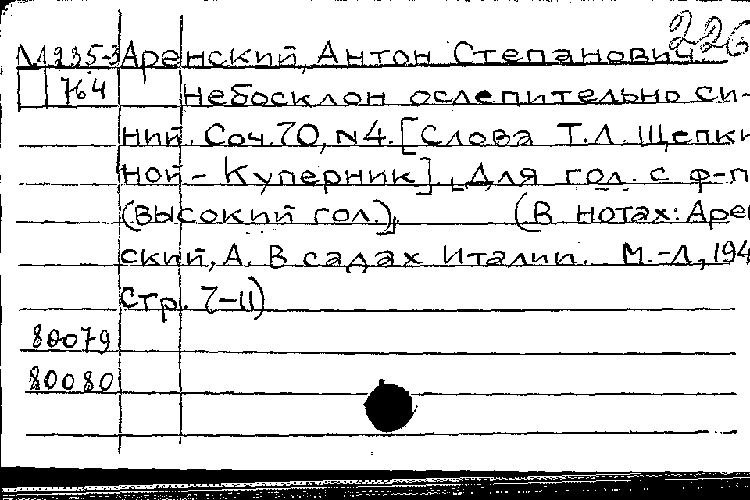 226
М 935-3 Аренский, Антон Степанович.
764 Небосклон ослепительно си-
ний. Соч. 70, N4. [Слова Т.Л. Щепки
ной - Куперник]. Для гол. с ф-п
(высокий гол.), (В нотах: Арен
ский, А. В садах Италии. М.-Л, 194
Стр. 7-11)
80079
80080